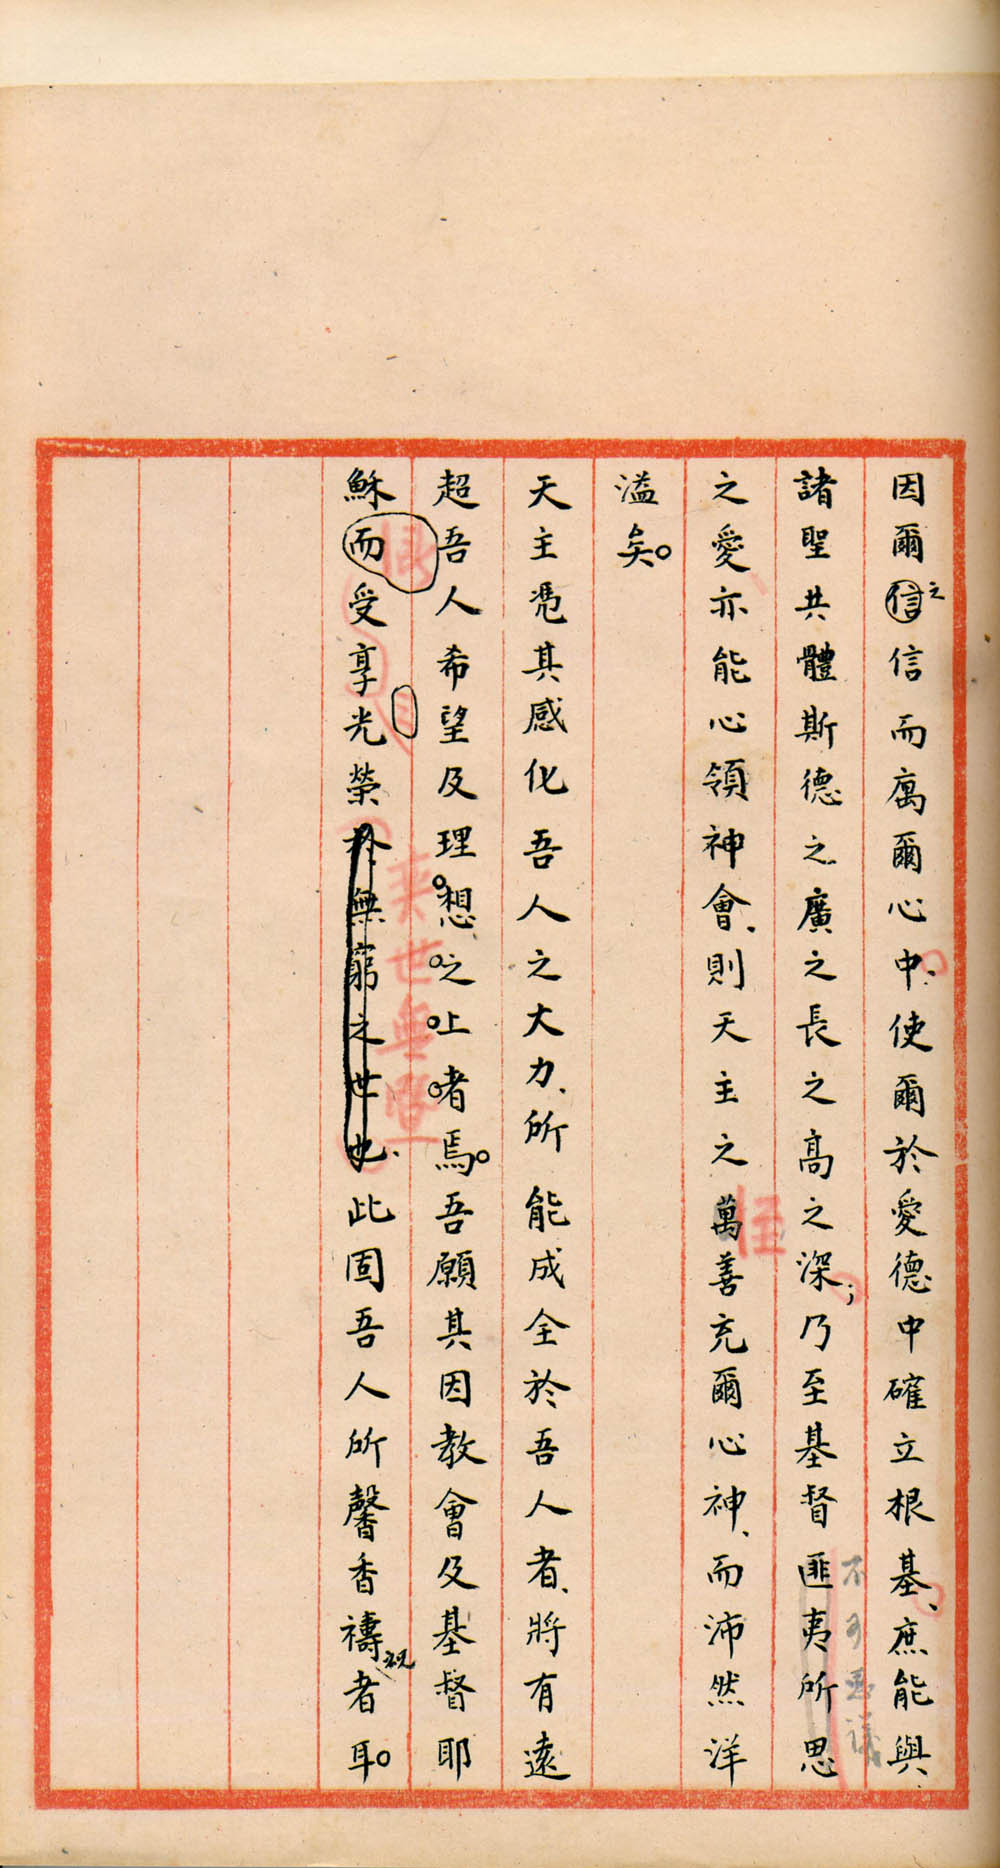 因爾信之信而寓爾心中、使爾於愛德中確立根基、庶能與
諸聖共體斯德之廣之長之高之深；乃至基督匪夷所思
不可思議
之愛亦能心領神會、則天主之萬善充爾心神、而沛然洋
溢矣。
天主憑其感化吾人之大力、所能成全於吾人者、將有遠
超吾人希望及理想之上者焉。吾願其因教會及基督耶
穌而受享光榮於無窮之世也、此固吾人所馨香禱祝者耳。
世無